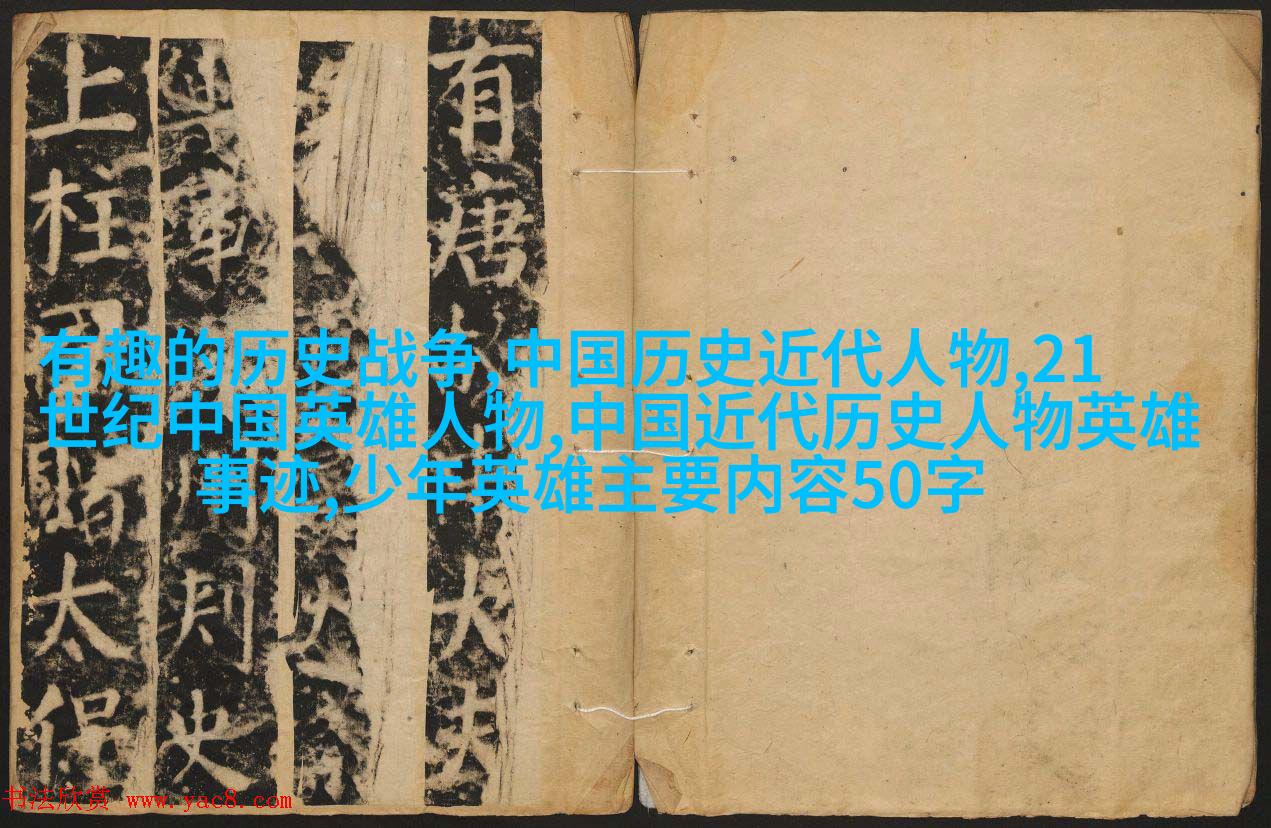 有唐大夫
軍州刺史
上柱國贈太保
有趣的历史战争,中国历史近代人物,21
世纪中国英雄人物,中国近代历史人物英雄
事迹,少年英雄主要内容50字
书法欣赏 www.yac8.com